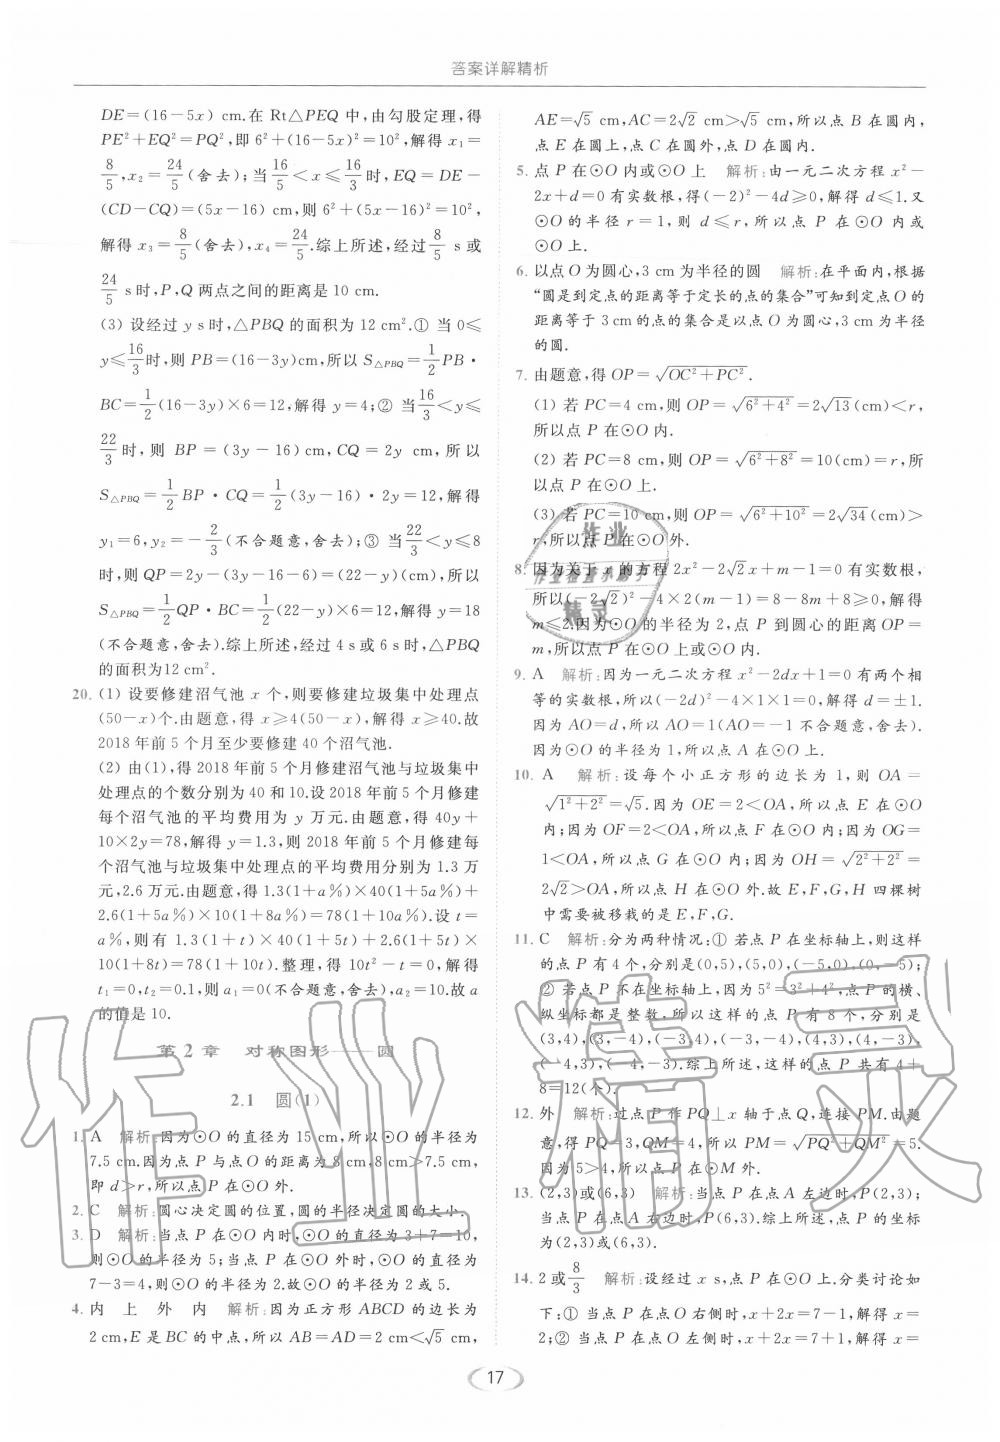 答案详解精析
DE=(16-5x) cm.在 Rt△PEQ 中,由勾股定理,得
PE²+EQ²=PQ²,即 6²+(16-5x)²=10²,解得 x₁=
8/5,x₂=24/5(舍去);当16/5<x≤16/3时,EQ=DE-
(CD-CQ)=(5x-16) cm,则 6²+(5x-16)²=10²,
解得 x₃=8/5(舍去),x₄=24/5.综上所述,经过8/5 s或
24/5 s时,P,Q 两点之间的距离是 10 cm.
(3) 设经过 y s时,△PBQ 的面积为 12 cm².① 当 0≤
y≤16/3时,则 PB=(16-3y)cm,所以 S△PBQ=1/2PB·
BC=1/2(16-3y)×6=12,解得 y=4;② 当16/3<y≤
22/3时,则 BP=(3y-16)cm,CQ=2y cm,所以
S△PBQ=1/2BP·CQ=1/2(3y-16)·2y=12,解得
y₁=6,y₂=-2/3(不合题意,舍去);③ 当22/3<y≤8
时,则 QP=2y-(3y-16-6)=(22-y)(cm),所以
S△PBQ=1/2QP·BC=1/2(22-y)×6=12,解得 y=18
(不合题意,舍去).综上所述,经过 4 s或 6 s时,△PBQ
的面积为12 cm².
20. (1) 设要修建沼气池 x 个,则要修建垃圾集中处理点
(50-x)个.由题意,得 x≥4(50-x),解得 x≥40.故
2018 年前 5 个月至少要修建 40 个沼气池.
(2) 由(1),得 2018 年前 5 个月修建沼气池与垃圾集中
处理点的个数分别为 40 和 10.设 2018 年前 5 个月修建
每个沼气池的平均费用为 y 万元.由题意,得 40y+
10×2y=78,解得 y=1.3,则 2018 年前 5 个月修建每
个沼气池与垃圾集中处理点的平均费用分别为 1.3 万
元,2.6 万元.由题意,得 1.3(1+a%)×40(1+5a%)+
2.6(1+5a%)×10(1+8a%)=78(1+10a%).设 t=
a%,则有 1.3(1+t)×40(1+5t)+2.6(1+5t)×
10(1+8t)=78(1+10t).整理,得 10t²-t=0,解得
t₁=0,t₂=0.1,则 a₁=0(不合题意,舍去),a₂=10.故 a
的值是 10.
第 2 章 对称图形——圆
2.1 圆(1)
1. A 解析:因为⊙O 的直径为 15 cm,所以⊙O 的半径为
7.5 cm.因为点 P 与点 O 的距离为 8 cm,8 cm>7.5 cm,
即 d>r,所以点 P 在⊙O 外.
2. C 解析:圆心决定圆的位置,圆的半径决定圆的大小.
3. D 解析:当点 P 在⊙O 内时,⊙O 的直径为 3+7=10,
则⊙O 的半径为 5;当点 P 在⊙O 外时,⊙O 的直径为
7-3=4,则⊙O 的半径为 2.故⊙O 的半径为 2 或 5.
4. 内 上 外 内 解析:因为正方形 ABCD 的边长为
2 cm,E 是 BC 的中点,所以 AB=AD=2 cm<√5 cm,
AE=√5 cm,AC=2√2 cm>√5 cm,所以点 B 在圆内,
点 E 在圆上,点 C 在圆外,点 D 在圆内.
5. 点 P 在⊙O 内或⊙O 上 解析:由一元二次方程 x²-
2x+d=0 有实数根,得(-2)²-4d≥0,解得 d≤1.又
⊙O 的半径 r=1,则 d≤r,所以点 P 在⊙O 内或
⊙O 上.
6. 以点 O 为圆心,3 cm 为半径的圆 解析:在平面内,根据
“圆是到定点的距离等于定长的点的集合”可知到定点 O 的
距离等于 3 cm 的点的集合是以点 O 为圆心,3 cm 为半径
的圆.
7. 由题意,得 OP=√(OC²+PC²).
(1) 若 PC=4 cm,则 OP=√(6²+4²)=2√13(cm)<r,
所以点 P 在⊙O 内.
(2) 若 PC=8 cm,则 OP=√(6²+8²)=10(cm)=r,所
以点 P 在⊙O 上.
(3) 若 PC=10 cm,则 OP=√(6²+10²)=2√34(cm)>
r,所以点 P 在⊙O 外.
8. 因为关于 x 的方程 2x²-2√2x+m-1=0 有实数根,
所以(-2√2)²-4×2(m-1)=8-8m+8≥0,解得
m≤2.因为⊙O 的半径为 2,点 P 到圆心的距离 OP=
m,所以点 P 在⊙O 上或⊙O 内.
9. A 解析:因为一元二次方程 x²-2dx+1=0 有两个相
等的实数根,所以(-2d)²-4×1×1=0,解得 d=±1.
因为 AO=d,所以 AO=1(AO=-1 不合题意,舍去).
因为⊙O 的半径为 1,所以点 A 在⊙O 上.
10. A 解析:设每个小正方形的边长为 1,则 OA=
√(1²+2²)=√5.因为 OE=2<OA,所以点 E 在⊙O
内;因为 OF=2<OA,所以点 F 在⊙O 内;因为 OG=
1<OA,所以点 G 在⊙O 内;因为 OH=√(2²+2²)=
2√2>OA,所以点 H 在⊙O 外.故 E,F,G,H 四棵树
中需要被移栽的是 E,F,G.
11. C 解析:分为两种情况:① 若点 P 在坐标轴上,则这样
的点 P 有 4 个,分别是(0,5),(5,0),(-5,0),(0,-5);
② 若点 P 不在坐标轴上,因为 5²=3²+4²,点 P 的横、
纵坐标都是整数,所以这样的点 P 有 8 个,分别是
(3,4),(3,-4),(-3,4),(-3,-4),(4,3),(4,-3),
(-4,3),(-4,-3).综上所述,这样的点 P 共有 4+
8=12(个).
12. 外 解析:过点 P 作 PQ⊥x 轴于点 Q,连接 PM.由题
意,得 PQ=3,QM=4,所以 PM=√(PQ²+QM²)=5.
因为 5>4,所以点 P 在⊙M 外.
13. (2,3)或(6,3) 解析:当点 P 在点 A 左边时,P(2,3);
当点 P 在点 A 右边时,P(6,3).综上所述,点 P 的坐标
为(2,3)或(6,3).
14. 2 或8/3 解析:设经过 x s,点 P 在⊙O 上.分类讨论如
下:① 当点 P 在点 O 右侧时,x+2x=7-1,解得 x=
2;② 当点 P 在点 O 左侧时,x+2x=7+1,解得 x=
17
作业精灵
作业
精灵